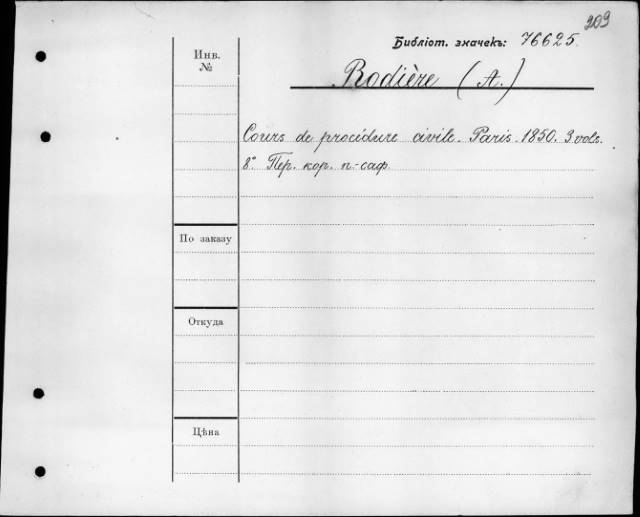 209
Библіот. значекъ: 76625.
Инв.
№
Rodière (A.)
Cours de procédure civile. Paris. 1850. 3 vols.
8°. Пер. кор. п.-саф.
По заказу
Откуда
Цѣна